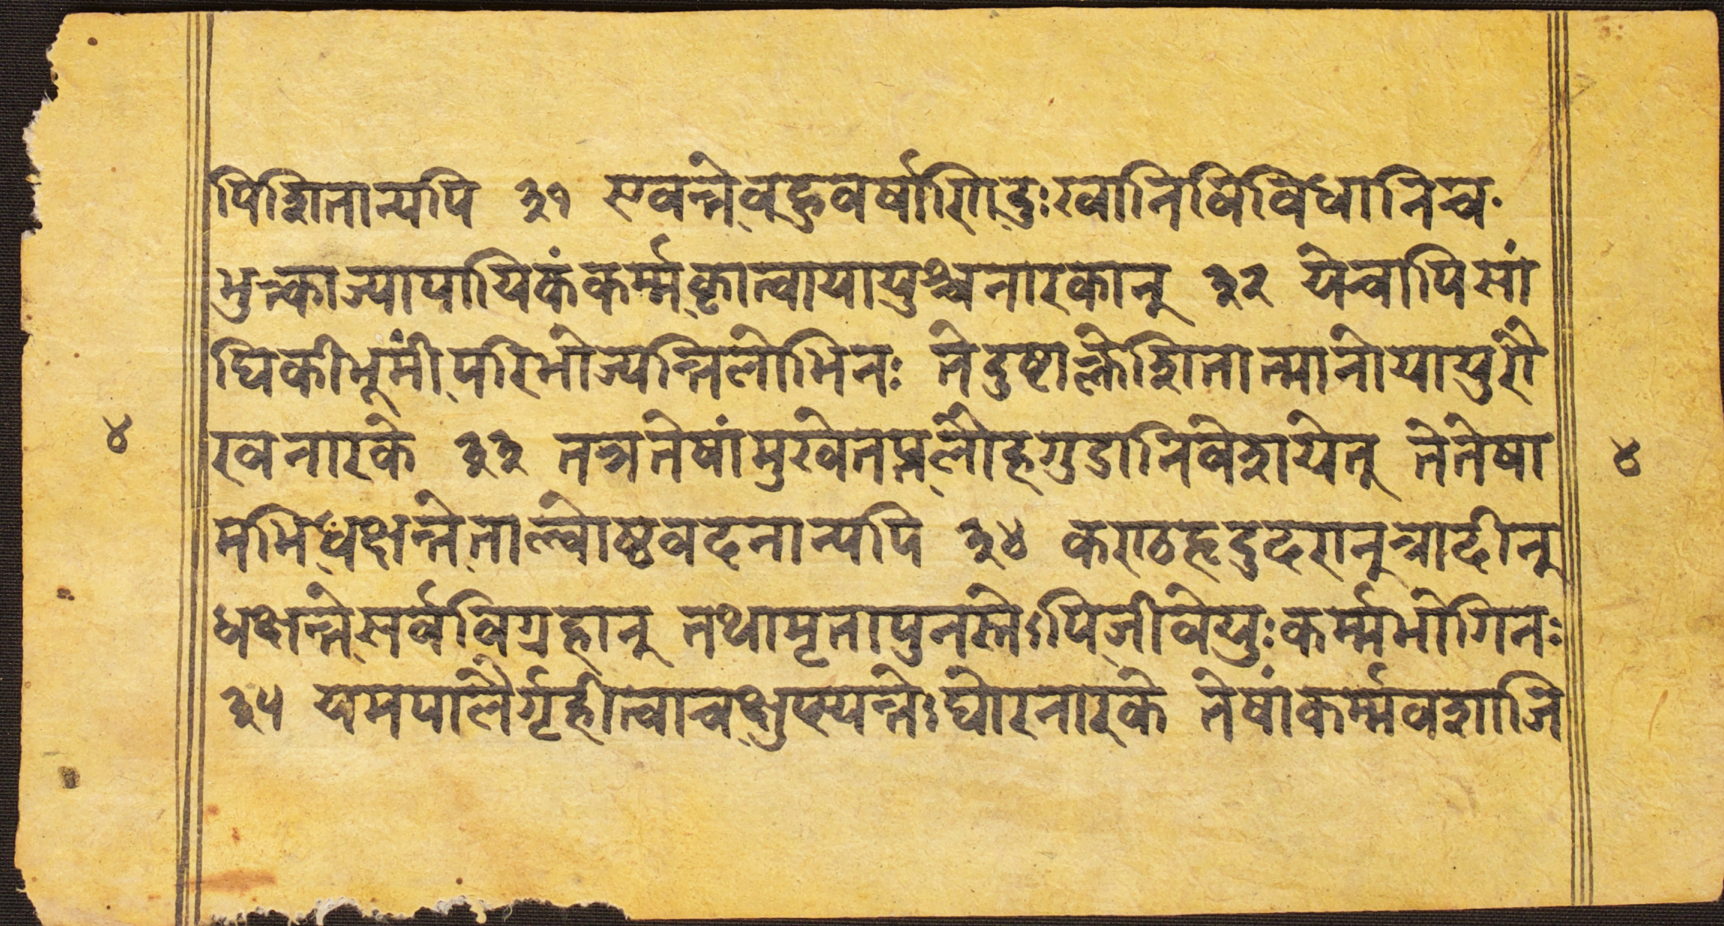 पिद्शितान्यपि ३१ एवन्ते बहुवर्षाणि दुःखानि विविधानि च
भुक्त्वाज्यापायिकं कर्म्म कृत्वा यायुश्च नारकान् ३२ ये चापि सां
घिकीभूमीं परिभोज्यन्ति लोभिनः ते दुष्टा क्लेशितात्मानो यायु रौ
रव नारके ३३ तत्र तेषां मुखे तप्त लौहगुडा निवेशयेत् ते तेषा
मभिधक्षन्ते ताल्वोष्ठवदनान्यपि ३४ कराठहृदुदरानन्त्रादीन्
धक्षन्ते सर्वविग्रहान् तथा मृता पुनस्तेऽपि जीवेयुः कर्म्मभोगिनः
३५ यमपालैर्गृहीत्वा च क्षुप्स्यन्ते घोरनारके तेषां कर्म्मवशाजि
४
४